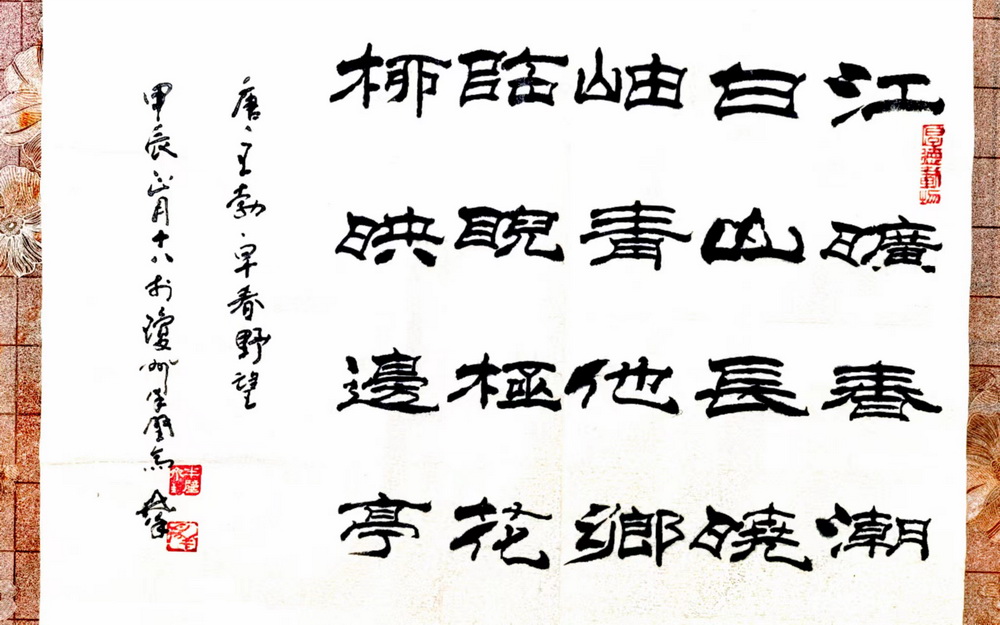 厚德載物
江曠春潮
白山長曉
岫青他鄉
臨睨極花
柳映邊亭
唐·王勃·早春野望
甲辰正月十八於瓊州